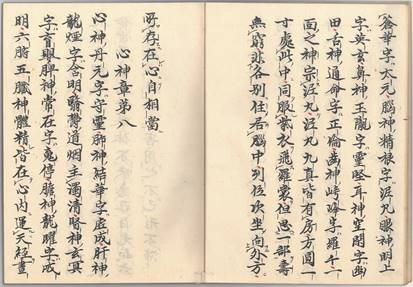 蒼華字太元腦神精根字泥丸眼神明上
字英玄鼻神玉隴字靈堅耳神空閑字幽
田舌神通命字正倫齒神崿峰字羅千一
面之神宗泥丸泥丸九真皆有房方圓一
寸處此中同服紫衣飛羅裳但思一部壽
無窮非各別住居腦中列位次坐向外方
所存在心自相當
心神章第八
心神丹元字守靈肺神皓華字虛成肝神
龍煙字含明翳鬱道烟主濁清腎神玄冥
字育嬰脾神常在字魂停膽神龍曜字威
明六腑五臟神體精皆在心內運天經晝